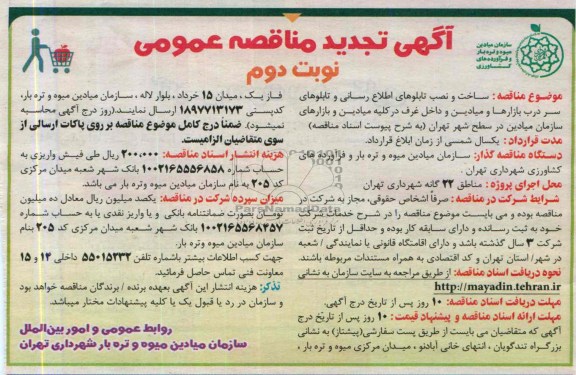 آگهی تجدید مناقصه عمومی
نوبت دوم
سازمان میادین
میوه و تره بار
و فرآورده های
کشاورزی
موضوع مناقصه : ساخت و نصب تابلوهای اطلاع رسانی و تابلوهای
سر درب بازارها و میادین و داخل غرف در کلیه میادین و بازارهای
سازمان میادین در سطح شهر تهران (به شرح پیوست اسناد مناقصه)
مدت قرارداد : یکسال شمسی از زمان ابلاغ قرارداد.
دستگاه مناقصه گذار: سازمان میادین میوه و تره بار و فرآورده های
کشاورزی شهرداری تهران .
محل اجرای پروژه : مناطق ۲۲ گانه شهرداری تهران
شرایط شرکت در مناقصه : صرفاً اشخاص حقوقی، مجاز به شرکت در
مناقصه بوده و می بایست موضوع مناقصه را در شرح خدمات شرکت
خود به ثبت رسانده و دارای سابقه کار بوده و حداقل از تاریخ ثبت
شرکت ۳ سال گذشته باشد و دارای اقامتگاه قانونی یا نمایندگی / شعبه
در شهر/ استان تهران و کد اقتصادی به همراه مستندات مربوطه باشند.
نحوه دریافت اسناد مناقصه: از طریق مراجعه به سایت سازمان به نشانی
http://mayadin.tehran.ir
مهلت دریافت اسناد مناقصه: ۱۰ روز پس از تاریخ درج آگهی.
مهلت ارائه اسناد مناقصه و پیشنهاد قیمت : ۱۰ روز پس از تاریخ درج
آگهی که متقاضیان می بایست از طریق پست سفارشی(پیشتاز) به نشانی
بزرگراه تندگویان ، انتهای خانی آبادنو ، میدان مرکزی میوه و تره بار ،
فاز یک ، میدان ۱۵ خرداد ، بلوار لاله ، سازمان میادین میوه و تره بار،
کدپستی ۱۸۹۷۷۱۳۱۷۳ ارسال نمایند.(روز درج آگهی محاسبه
نمیشود). ضمناً درج کامل موضوع مناقصه بر روی پاکات ارسالی از
سوی متقاضیان الزامیست.
هزینه انتشار اسناد مناقصه: ۲۰۰,۰۰۰ ریال طی فیش واریزی به
حساب شماره ۱۰۰۲۱۶۵۵۵۶۸۵۸ بانک شهر شعبه میدان مرکزی
کد ۲۰۵ به نام سازمان میادین می باشد.
میزان سپرده شرکت در مناقصه: یکصد میلیون ریال معادل ده میلیون
تومان بصورت ضمانتنامه بانکی و یا واریز نقدی یا به حساب شماره
۱۰۰۲۱۶۵۵۶۸۲۵۷ بانک شهر شعبه میدان مرکزی کد ۲۰۵ بنام
سازمان میادین میوه وتره بار.
جهت کسب اطلاعات بیشتر باشماره تلفن ۵۵۰۱۵۲۳۲ داخلی ۱۴ و ۱۵
معاونت فنی تماس حاصل فرمائید.
تذکر: هزینه انتشار این آگهی بعهده برنده / برندگان مناقصه خواهد بود
و سازمان در رد یا قبول یک یا کلیه پیشنهادات مختار میباشد.
روابط عمومی و امور بین الملل
سازمان میادین میوه و تره بار شهرداری تهران